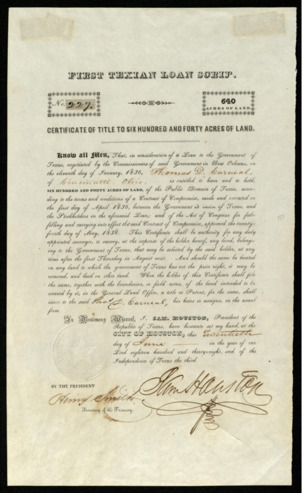 FIRST TEXIAN LOAN SCRIP.
No. 227.
640
ACRES OF LAND.
CERTIFICATE OF TITLE TO SIX HUNDRED AND FORTY ACRES OF LAND.
Know all Men, That, in consideration of a Loan to the Government of
Texas, negotiated by the Commissioners of said Government in New Orleans, on
the eleventh day of January, 1836, Thomas D. Carneal,
of Cincinnati Ohio, is entitled to have and to hold,
SIX HUNDRED AND FORTY ACRES OF LAND, of the Public Domain of Texas, accord-
ing to the terms and conditions of a Contract of Compromise, made and executed on
the first day of April, 1836, between the Government ad interim of Texas, and
the Stockholders in the aforesaid Loan; and of the Act of Congress for ful-
filling and carrying into effect the said Contract of Compromise, approved the twenty-
fourth day of May, 1838. This Certificate shall be authority for any duly
appointed surveyor, to survey, at the expense of the holder hereof, any land, belong-
ing to the Government of Texas, that may be selected by the said holder, at any
time after the first Thursday in August next. And should the same be located
on any land to which the government of Texas has not the prior right, it may be
removed, and laid on other land. When the holder of this Certificate shall file
the same, together with the boundaries, or field notes, of the land intended to be
covered by it, in the General Land Office, a title or Patent, for the same, shall
issue to the said Thos D Carneal, his heirs or assigns, in the usual
form.
In Testimony Whereof, I, SAM. HOUSTON, President of the
Republic of Texas, have hereunto set my hand, at the
CITY OF HOUSTON, this
day of June in the year of our
Lord eighteen hundred and thirty-eight, and of the
Independence of Texas the third.
BY THE PRESIDENT
Sam Houston
Henry Smith
Secretary of the Treasury.